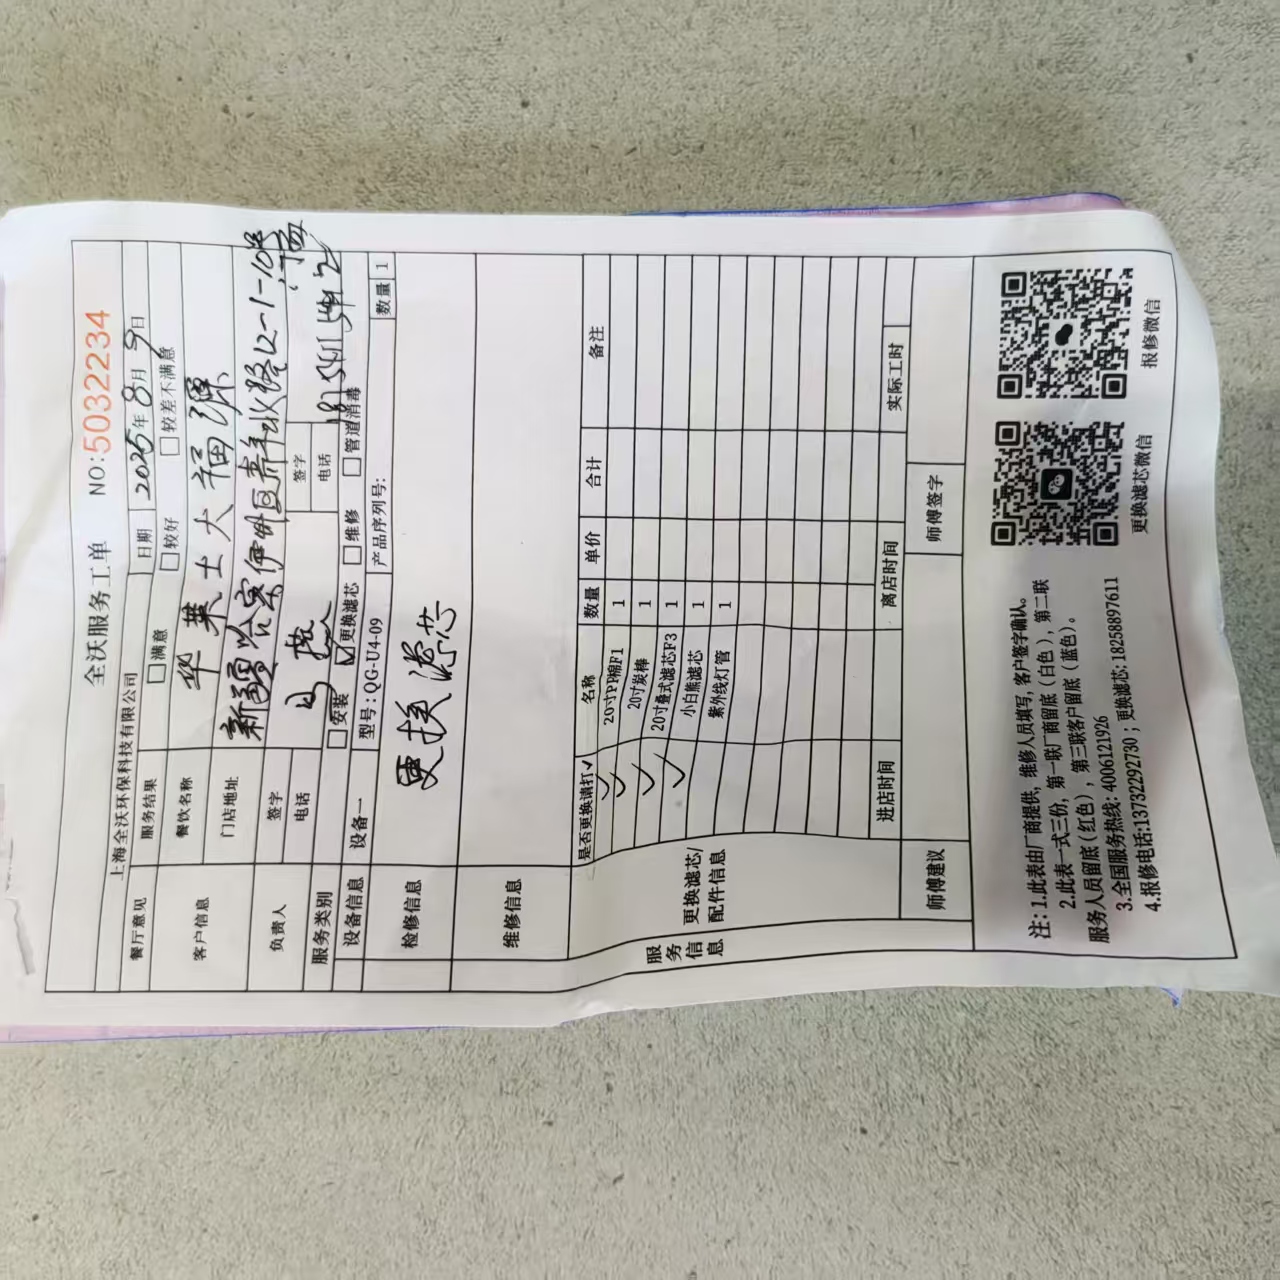 全沃服务工单
NO:5032234
上海全沃环保科技有限公司
日期 2025年8月9日
餐厅意见 服务结果 满意 较好 较差不满意
客户信息 餐饮名称 华莱士大福源
门店地址 新疆哈密伊州区 路12-1-10号
负责人 签字 签字
电话 电话
服务类别 安装 ☑更换滤芯 维修 管道消毒
设备信息 设备一 型号:QG-U4-09 产品序列号: 数量 1
检修信息 更换滤芯
维修信息
服务信息
更换滤芯/配件信息
是否更换请打✓ 名称 数量 单价 合计 备注
✓ 20寸PP棉F1 1
✓ 20寸炭棒 1
✓ 20寸叠式滤芯F3 1
小白熊滤芯 1
紫外线灯管 1
进店时间 离店时间 实际工时
师傅建议 师傅签字
注:1.此表由厂商提供,维修人员填写,客户签字确认。
2.此表一式三份,第一联厂商留底(白色),第二联
服务人员留底(红色),第三联客户留底(蓝色)。
3.全国服务热线:4006121926
4.报修电话:13732292730;更换滤芯:18258897611
更换滤芯微信 报修微信